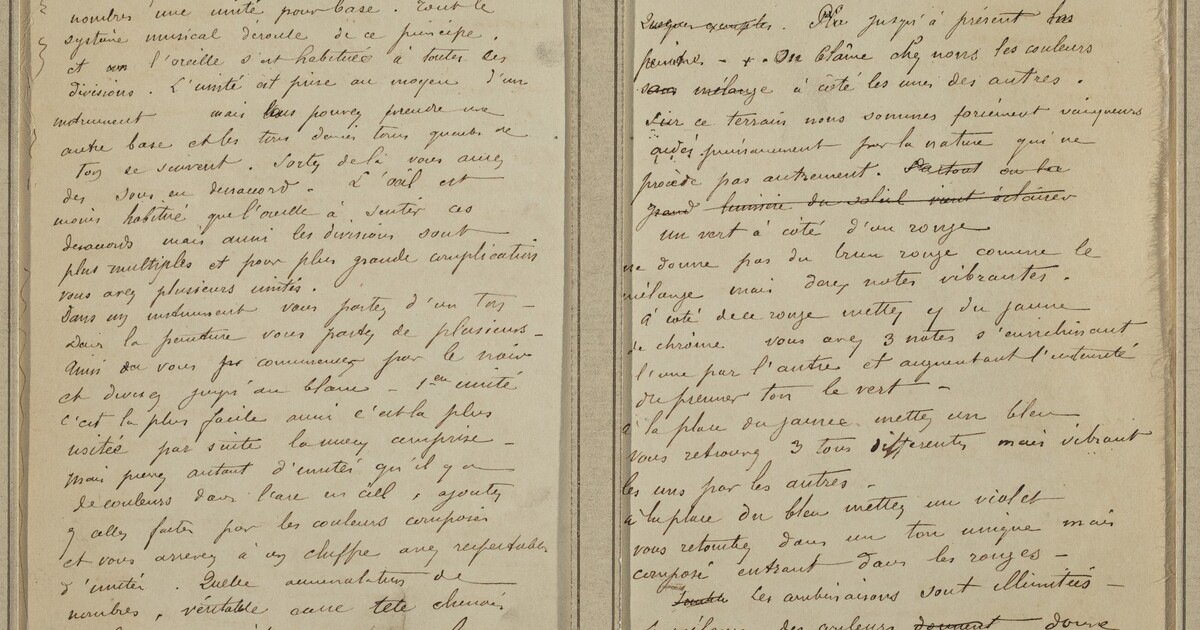 nombres une unité pour base. Tout le
système musical déroule de ce principe.
et l'oreille s'est habituée à toutes ces
divisions. L'unité est prise au moyen d'un
instrument mais vous pouvez prendre une
autre base et les tons demis tons quarts de
ton se suivent. Sortez de là vous aurez
des sons en désaccord. L'œil est
moins habitué que l'oreille à sentir ces
désaccords mais aussi les divisions sont
plus multiples et pour plus grande complication
vous avez plusieurs unités.
Dans un instrument vous partez d'un ton —
Dans la peinture vous partez de plusieurs —
Ainsi vous commencez par le noir
et divisez jusqu'au blanc — 1ère unité
c'est la plus facile aussi c'est la plus
usitée par suite la mieux comprise —
mais prenez autant d'unités qu'il y a
de couleurs dans l'arc en ciel, ajoutez
y celles faites par les couleurs composées
et vous arrivez à un chiffre assez respectable
d'unités. Quelle accumulation de
nombres, véritable casse tete chinois
Quelques exemples. jusqu'à présent
peintres — + . On blâme chez nous les couleurs
sans mélange à côté les unes des autres.
Sur ce terrain nous sommes forcément vainqueurs
aidés puissamment par la nature qui ne
procède pas autrement. Partout ou la
grand lumière du soleil vient éclairer
un vert à côté d'un rouge
ne donne pas du brun rouge comme le
mélange mais deux notes vibrantes.
à côté de ce rouge mettez y du jaune
de chrome vous avez 3 notes s'enrichissant
l'une par l'autre et augmentant l'intensité
du premier ton le vert —
à la place du jaune mettez un bleu
vous retrouvez 3 tons différents mais vibrant
les uns par les autres —
à la place du bleu mettez un violet
vous retombez dans un ton unique mais
composé entrant dans les rouges —
Les combinaisons sont illimitées —
mélange des couleurs donnent donne